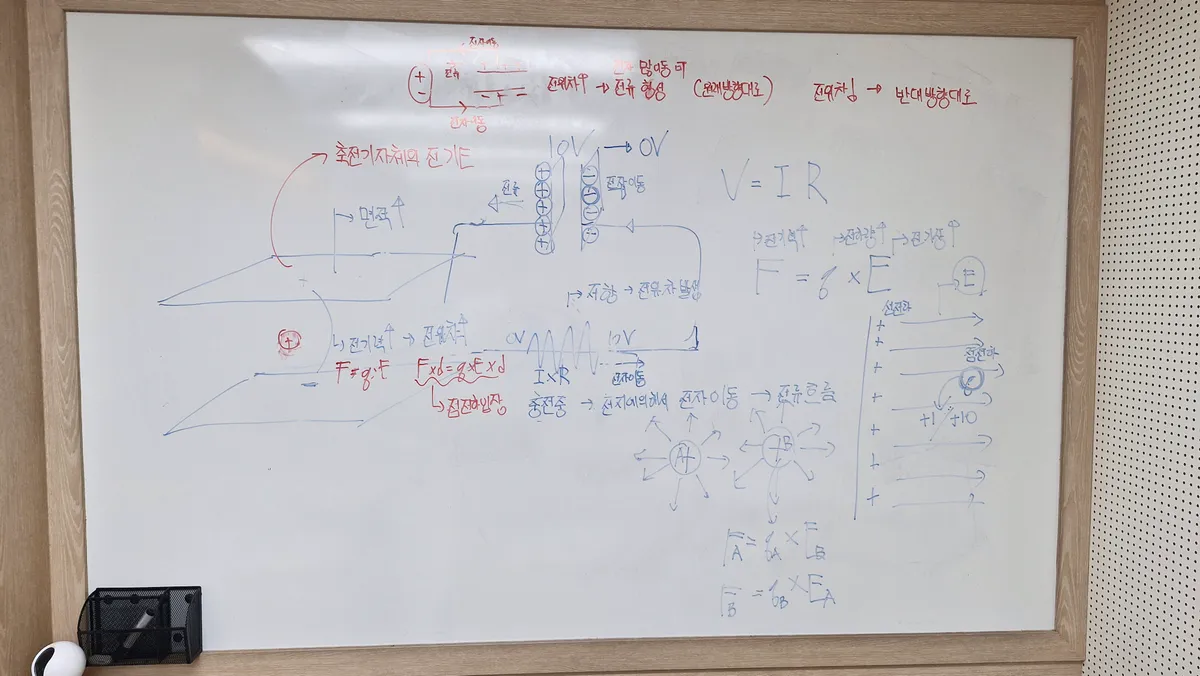 전자이동
전위차↑ → 전류 형성 (원래방향대로) 전위차↓ → 반대방향대로
많이동
전자이동
축전기자체의 전기E
10V → 0V
전류
전자이동
면적↑
V = I R
전기력↑ 전하량↑ 전기장↑
F = q × E
E
저항 → 전위차 발생
선전하
전기력↑ → 전위차↑
0V 10V
I×R
전자이동
점전하
F=q·E F×d=q×E×d
점전하입장
충전중 → 전지에의해서 전자이동 → 전류흐름
+1 +10
A+ +B
F_A = q_A × E_B
F_B = q_B × E_A